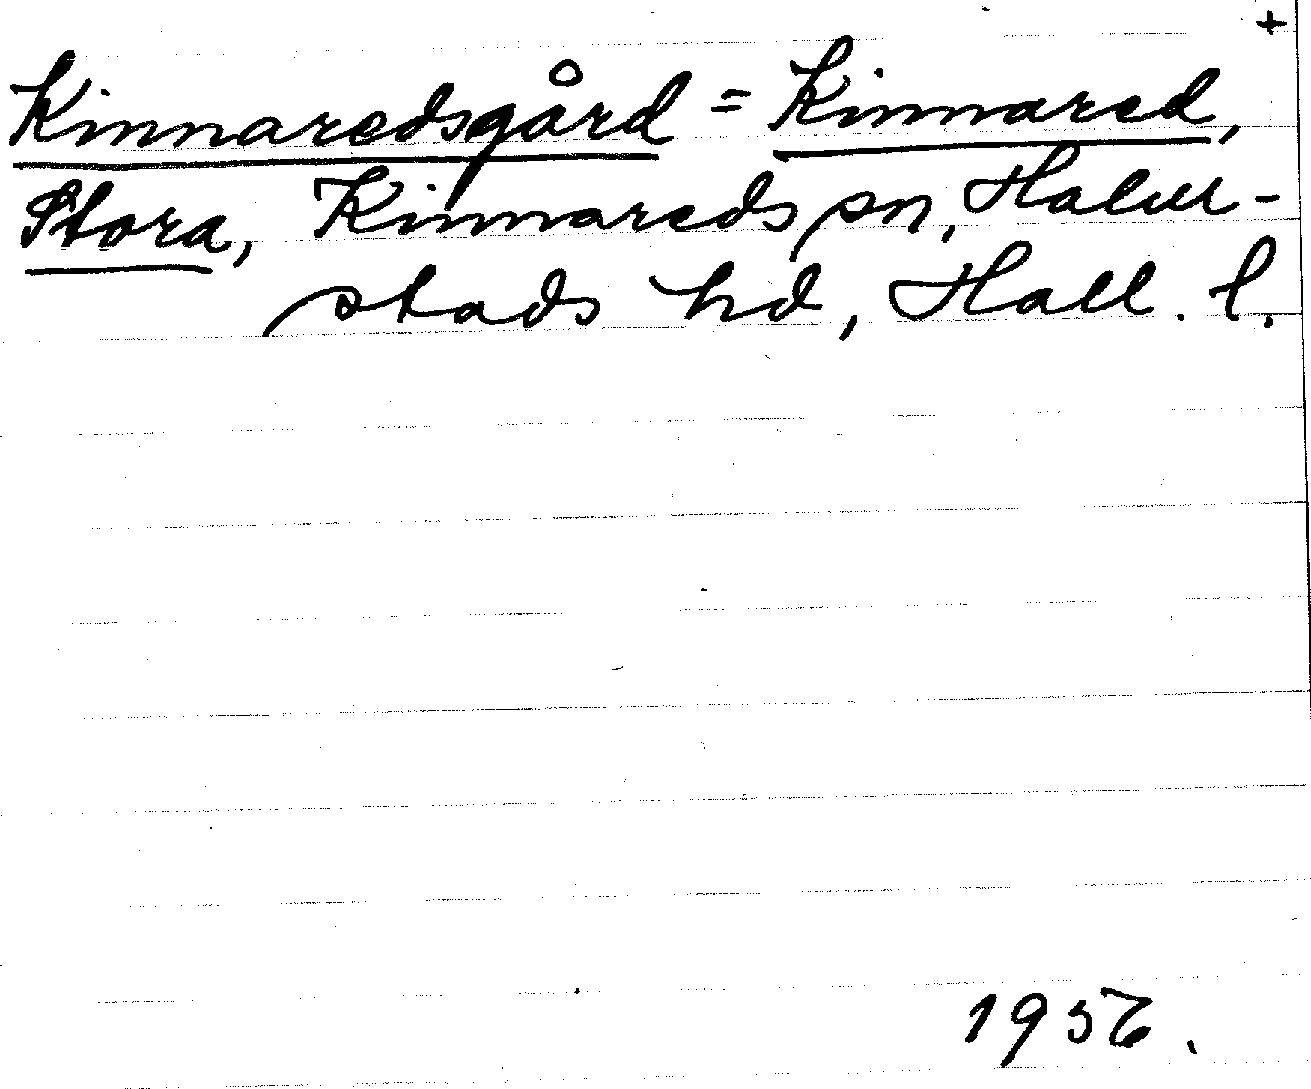 +
Kinnaredsgård = Kinnared,
Stora, Kinnareds sn, Halm-
stads hd, Hall. l.
1956.